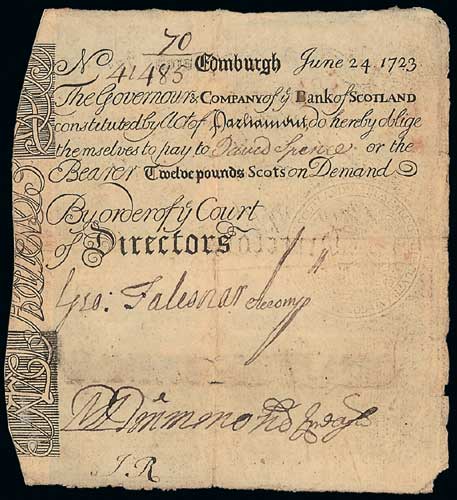 70
No 41485 Edinburgh June 24. 1723
The Governour & COMPANY of ye Bank of SCOTLAND
constituted by Act of Parliament, do hereby oblige
themselves to pay to David Spence or the
Bearer Twelve pounds Scots on Demand
By order of ye Court
of Directors
Geo:
Drummond
J.R